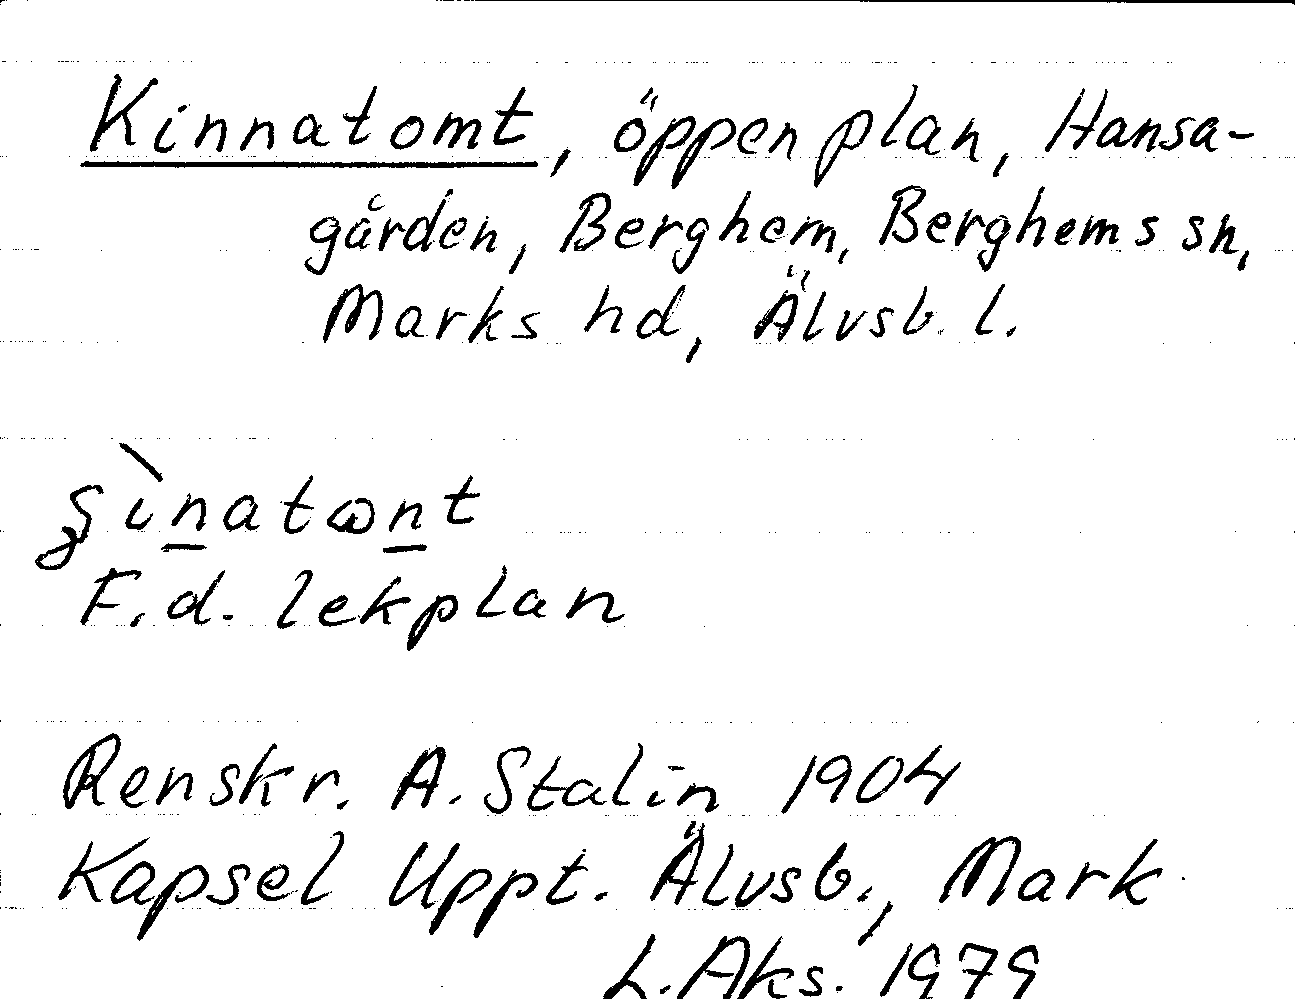 Kinnatomt, öppen plan, Hansa-
gården, Berghem, Berghems sn,
Marks hd, Älvsb. l.
F.d. lekplan
Renskr. A. Stalin 1904
Kapsel Uppt. Älvsb., Mark
L. Aks. 1979